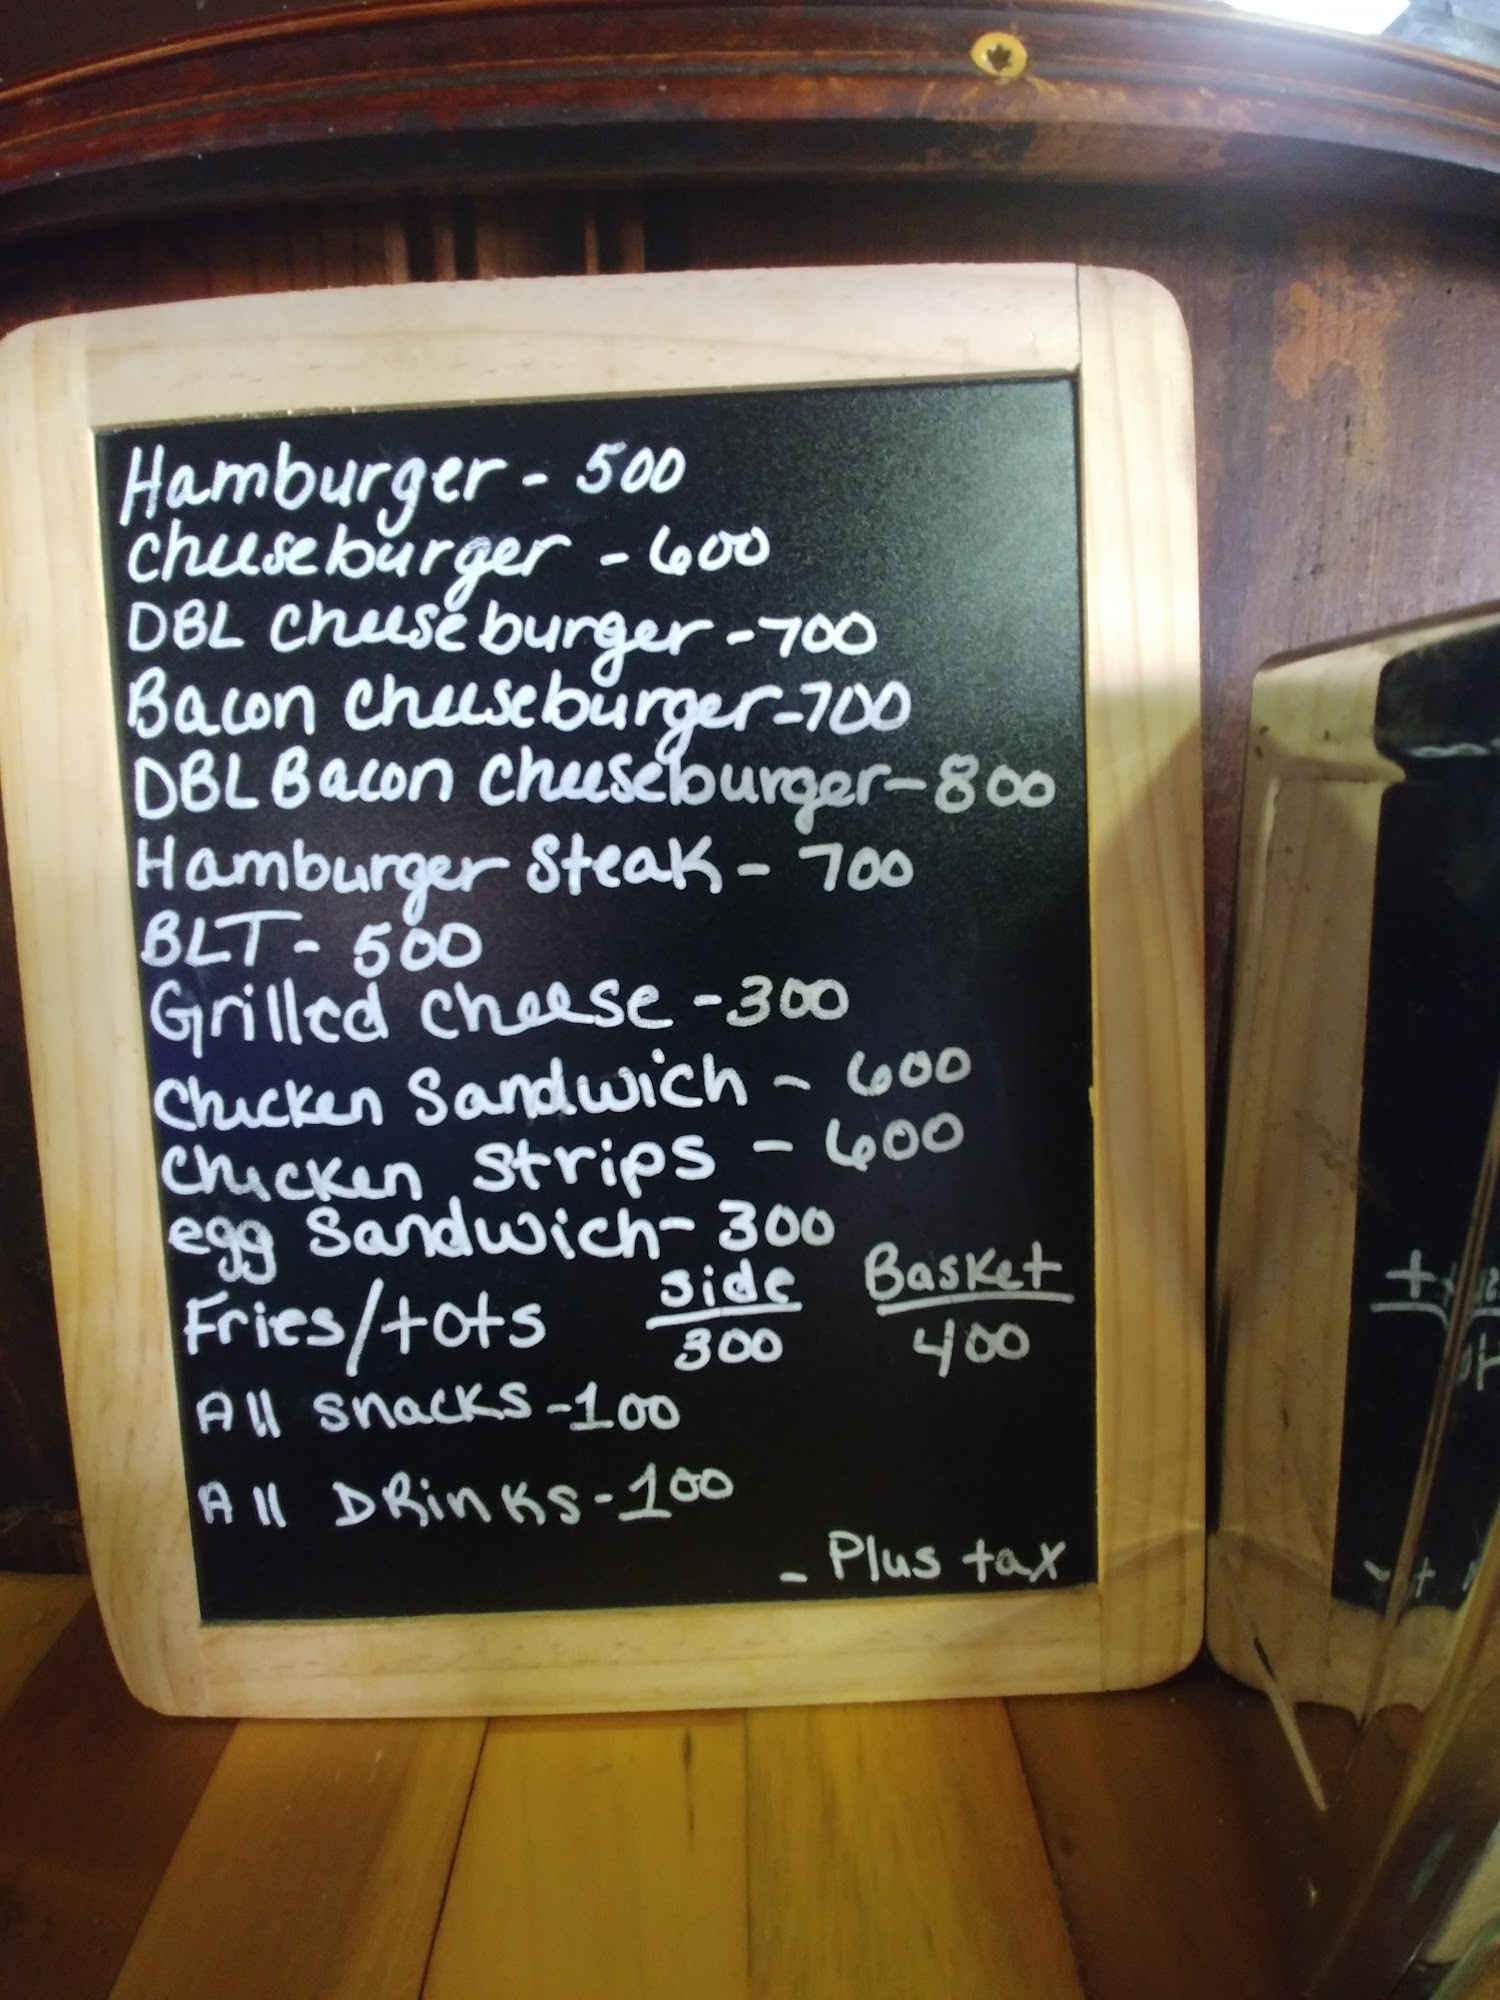 Hamburger - 500
Cheeseburger - 600
DBL Cheeseburger - 700
Bacon Cheeseburger - 700
DBL Bacon Cheeseburger - 800
Hamburger Steak - 700
BLT - 500
Grilled Cheese - 300
Chicken Sandwich - 600
Chicken Strips - 600
egg Sandwich - 300
Fries/tots side 300 Basket 400
All snacks - 100
All DRinks - 100
- Plus tax